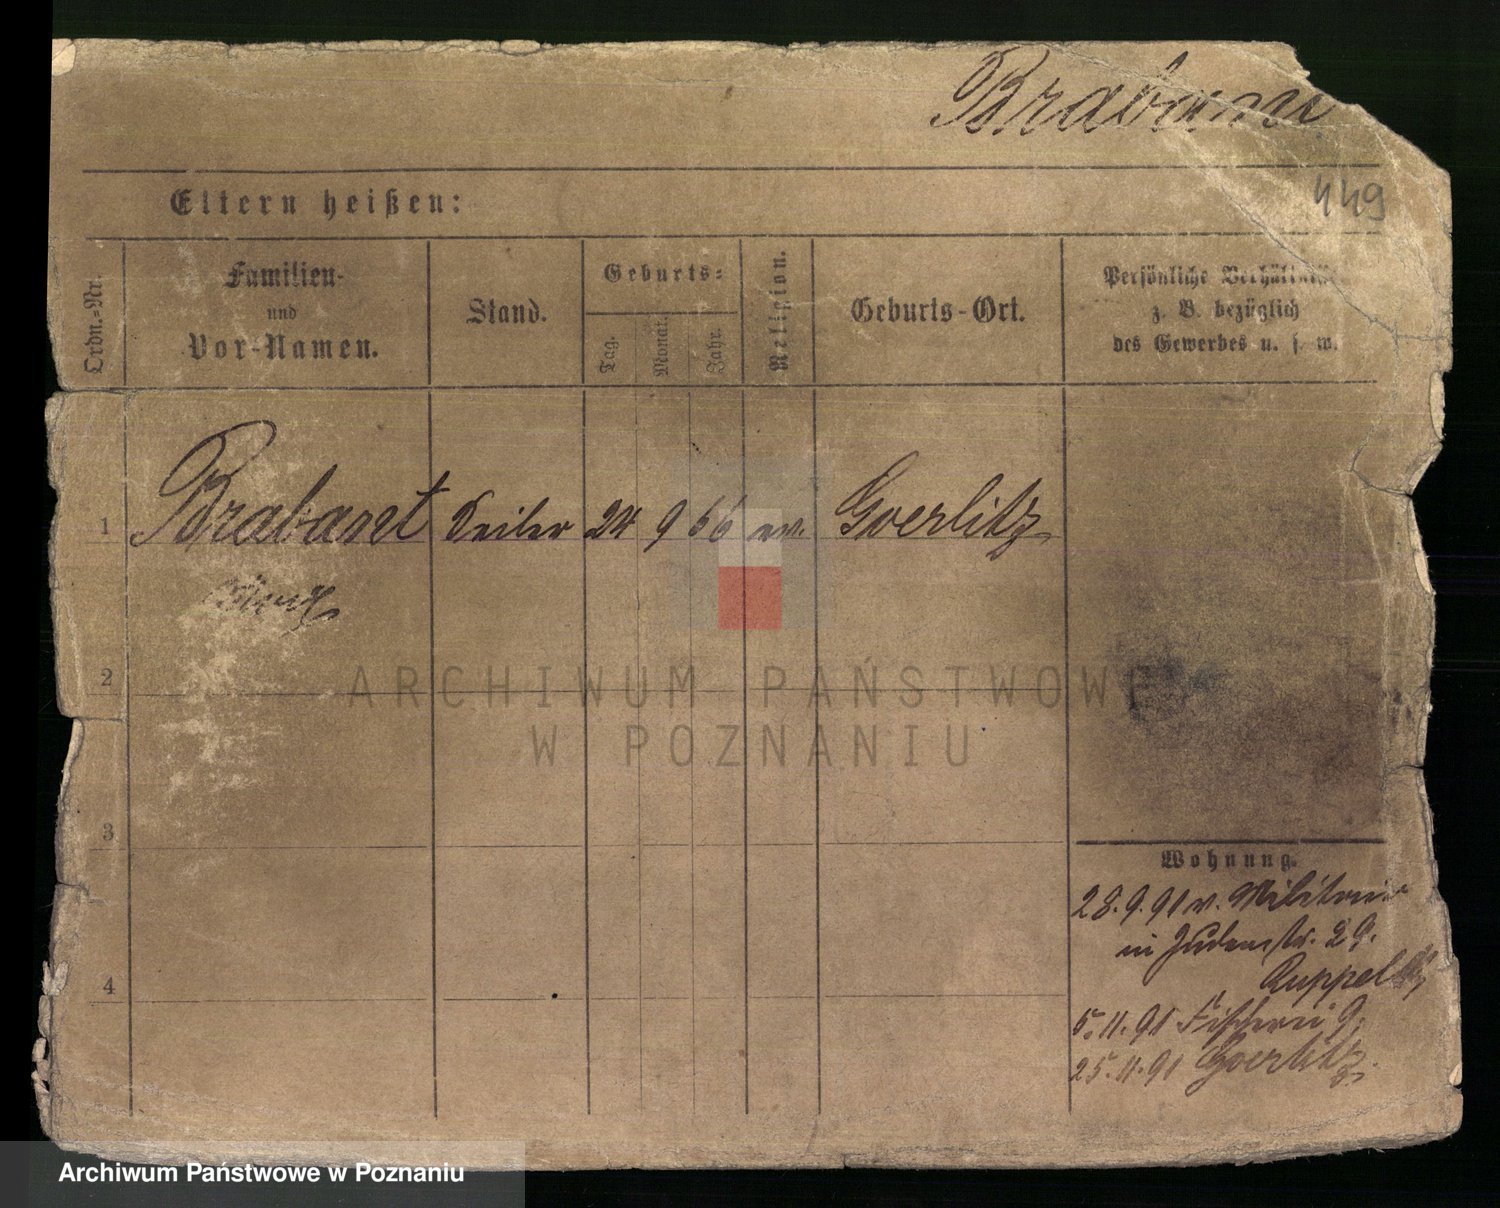 Braban
449
Eltern heißen:
Ordn.-Nr.
Familien-
und
Vor-Namen.
Stand.
Geburts-
Tag.
Monat.
Jahr.
Religion.
Geburts-Ort.
Persönliche Verhältnisse
z. B. bezüglich
des Gewerbes u. s. w.
1 Brabant Seiler 24 9 66 ev. Goerlitz
2
3
4
Wohnung.
28.9.91 v. Militair
in Judenstr. 29.
Ruppel
5.11.91 Fischerei 9.
25.11.91 Goerlitz.
ARCHIWUM PAŃSTWOWE
W POZNANIU
Archiwum Państwowe w Poznaniu